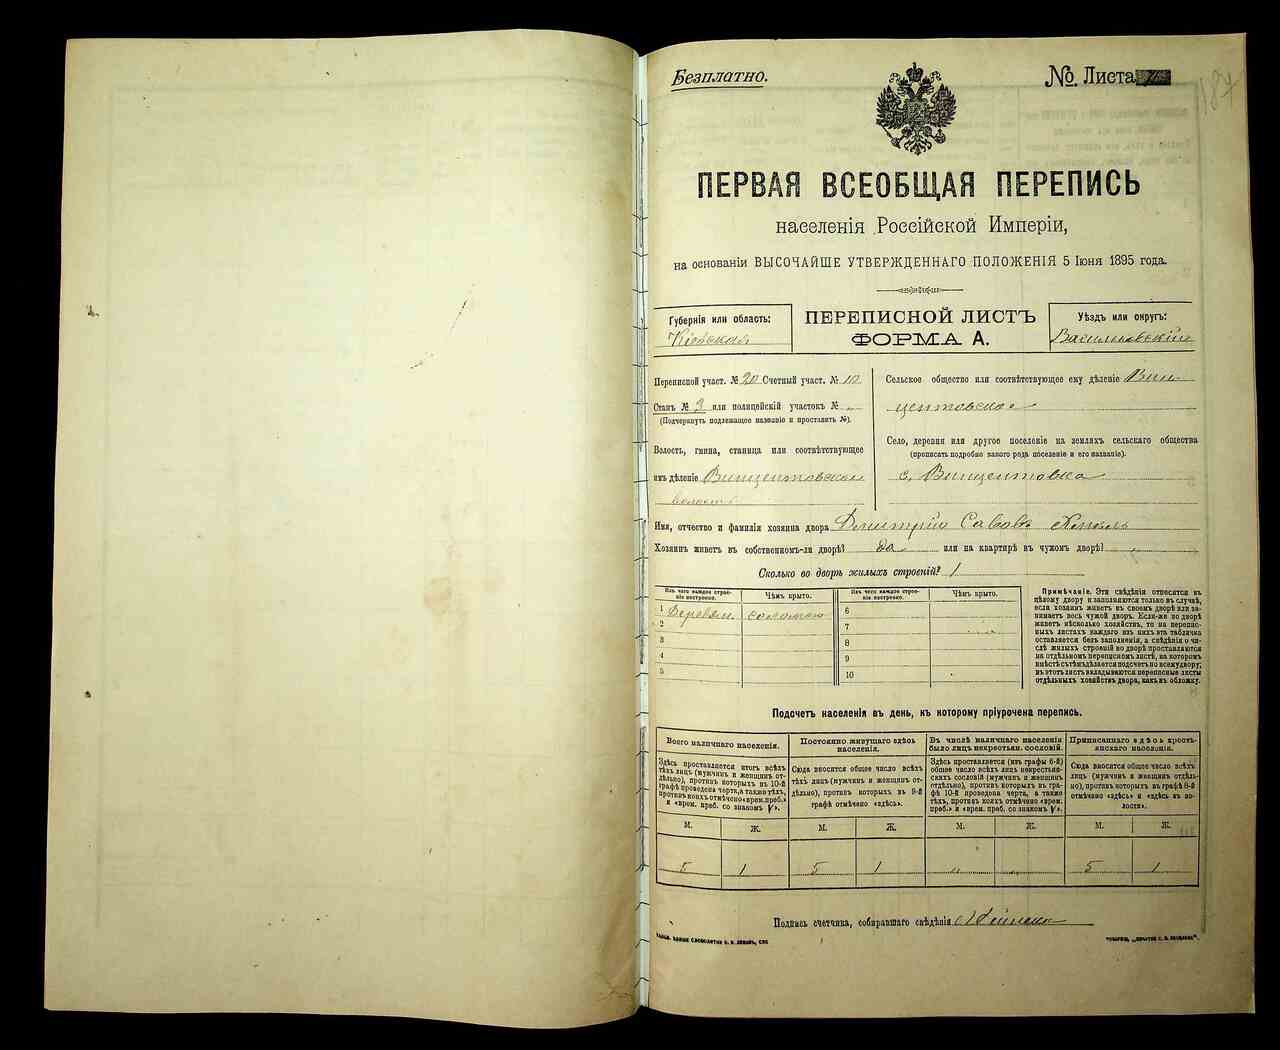 Безплатно.
№ Листа
187
ПЕРВАЯ ВСЕОБЩАЯ ПЕРЕПИСЬ
населенія Россійской Имперіи,
на основаніи ВЫСОЧАЙШЕ УТВЕРЖДЕННАГО ПОЛОЖЕНІЯ 5 Іюня 1895 года.
Губернія или область:
Кіевская
ПЕРЕПИСНОЙ ЛИСТЪ
ФОРМА А.
Уѣздъ или округъ:
Васильковскій
Переписной участ. № 20 Счетный участ. № 10
Станъ № 3 или полицейскій участокъ №
(Подчеркнуть подлежащее названіе и проставить №).
Волость, гмина, станица или соотвѣтствующее
имъ дѣленіе Винцентовская
волость
Сельское общество или соотвѣтствующее ему дѣленіе Вин
центовское
Село, деревня или другое поселеніе на земляхъ сельскаго общества
(прописать подробно какого рода поселеніе и его названіе).
с. Винцентовка
Имя, отчество и фамилія хозяина двора Дмитрій Савовъ
Хозяинъ живетъ въ собственномъ-ли дворѣ? да или на квартирѣ въ чужомъ дворѣ?
Сколько во дворѣ жилыхъ строеній? 1
Изъ чего каждое строе-
ніе построено.
Чѣмъ крыто.
1 Деревян. соломою
2
3
4
5
Изъ чего каждое строе-
ніе построено.
Чѣмъ крыто.
6
7
8
9
10
Примѣчаніе. Эти свѣдѣнія относятся къ
цѣлому двору и заполняются только въ случаѣ,
если хозяинъ живетъ въ своемъ дворѣ или за-
нимаетъ весь чужой дворъ. Если-же во дворѣ
живетъ нѣсколько хозяйствъ, то на перепис-
ныхъ листахъ каждаго изъ нихъ эта табличка
оставляется безъ заполненія, а свѣдѣнія о чи-
слѣ жилыхъ строеній во дворѣ проставляются
на отдѣльномъ переписномъ листѣ, на которомъ
вмѣстѣ съ тѣмъ дѣлается подсчетъ по всему двору;
въ этотъ листъ вкладываются переписные листы
отдѣльныхъ хозяйствъ двора, какъ въ обложку.
Подсчетъ населенія въ день, къ которому пріурочена перепись.
Всего наличнаго населенія.
Здѣсь проставляется итогъ всѣхъ
тѣхъ лицъ (мужчинъ и женщинъ от-
дѣльно), противъ которыхъ въ 10-й
графѣ проведена черта, а также тѣхъ,
противъ коихъ отмѣчено «врем. преб.»
и «врем. преб. со знакомъ V».
Постоянно живущаго здѣсь
населенія.
Сюда вносится общее число всѣхъ
тѣхъ лицъ (мужчинъ и женщинъ отдѣ-
льно), противъ которыхъ въ 9-й
графѣ отмѣчено «здѣсь».
Въ числѣ наличнаго населенія
было лицъ некрестьян. сословій.
Здѣсь проставляется (изъ графы 6-й)
общее число всѣхъ лицъ некрестьян-
скихъ сословій (мужчинъ и женщинъ
отдѣльно), противъ которыхъ въ гра-
фѣ 10-й проведена черта, а также
тѣхъ, противъ коихъ отмѣчено «врем.
преб.» и «врем. преб. со знакомъ V».
Приписаннаго здѣсь кресть-
янскаго населенія.
Сюда вносятся общее число всѣхъ
лицъ (мужчинъ и женщинъ отдѣль-
но), противъ которыхъ въ графѣ 8-й
отмѣчено «здѣсь» и «здѣсь въ во-
лости».
М. Ж. М. Ж. М. Ж. М. Ж.
5 1 5 1 „ 5 1
Подпись счетчика, собиравшаго свѣдѣнія